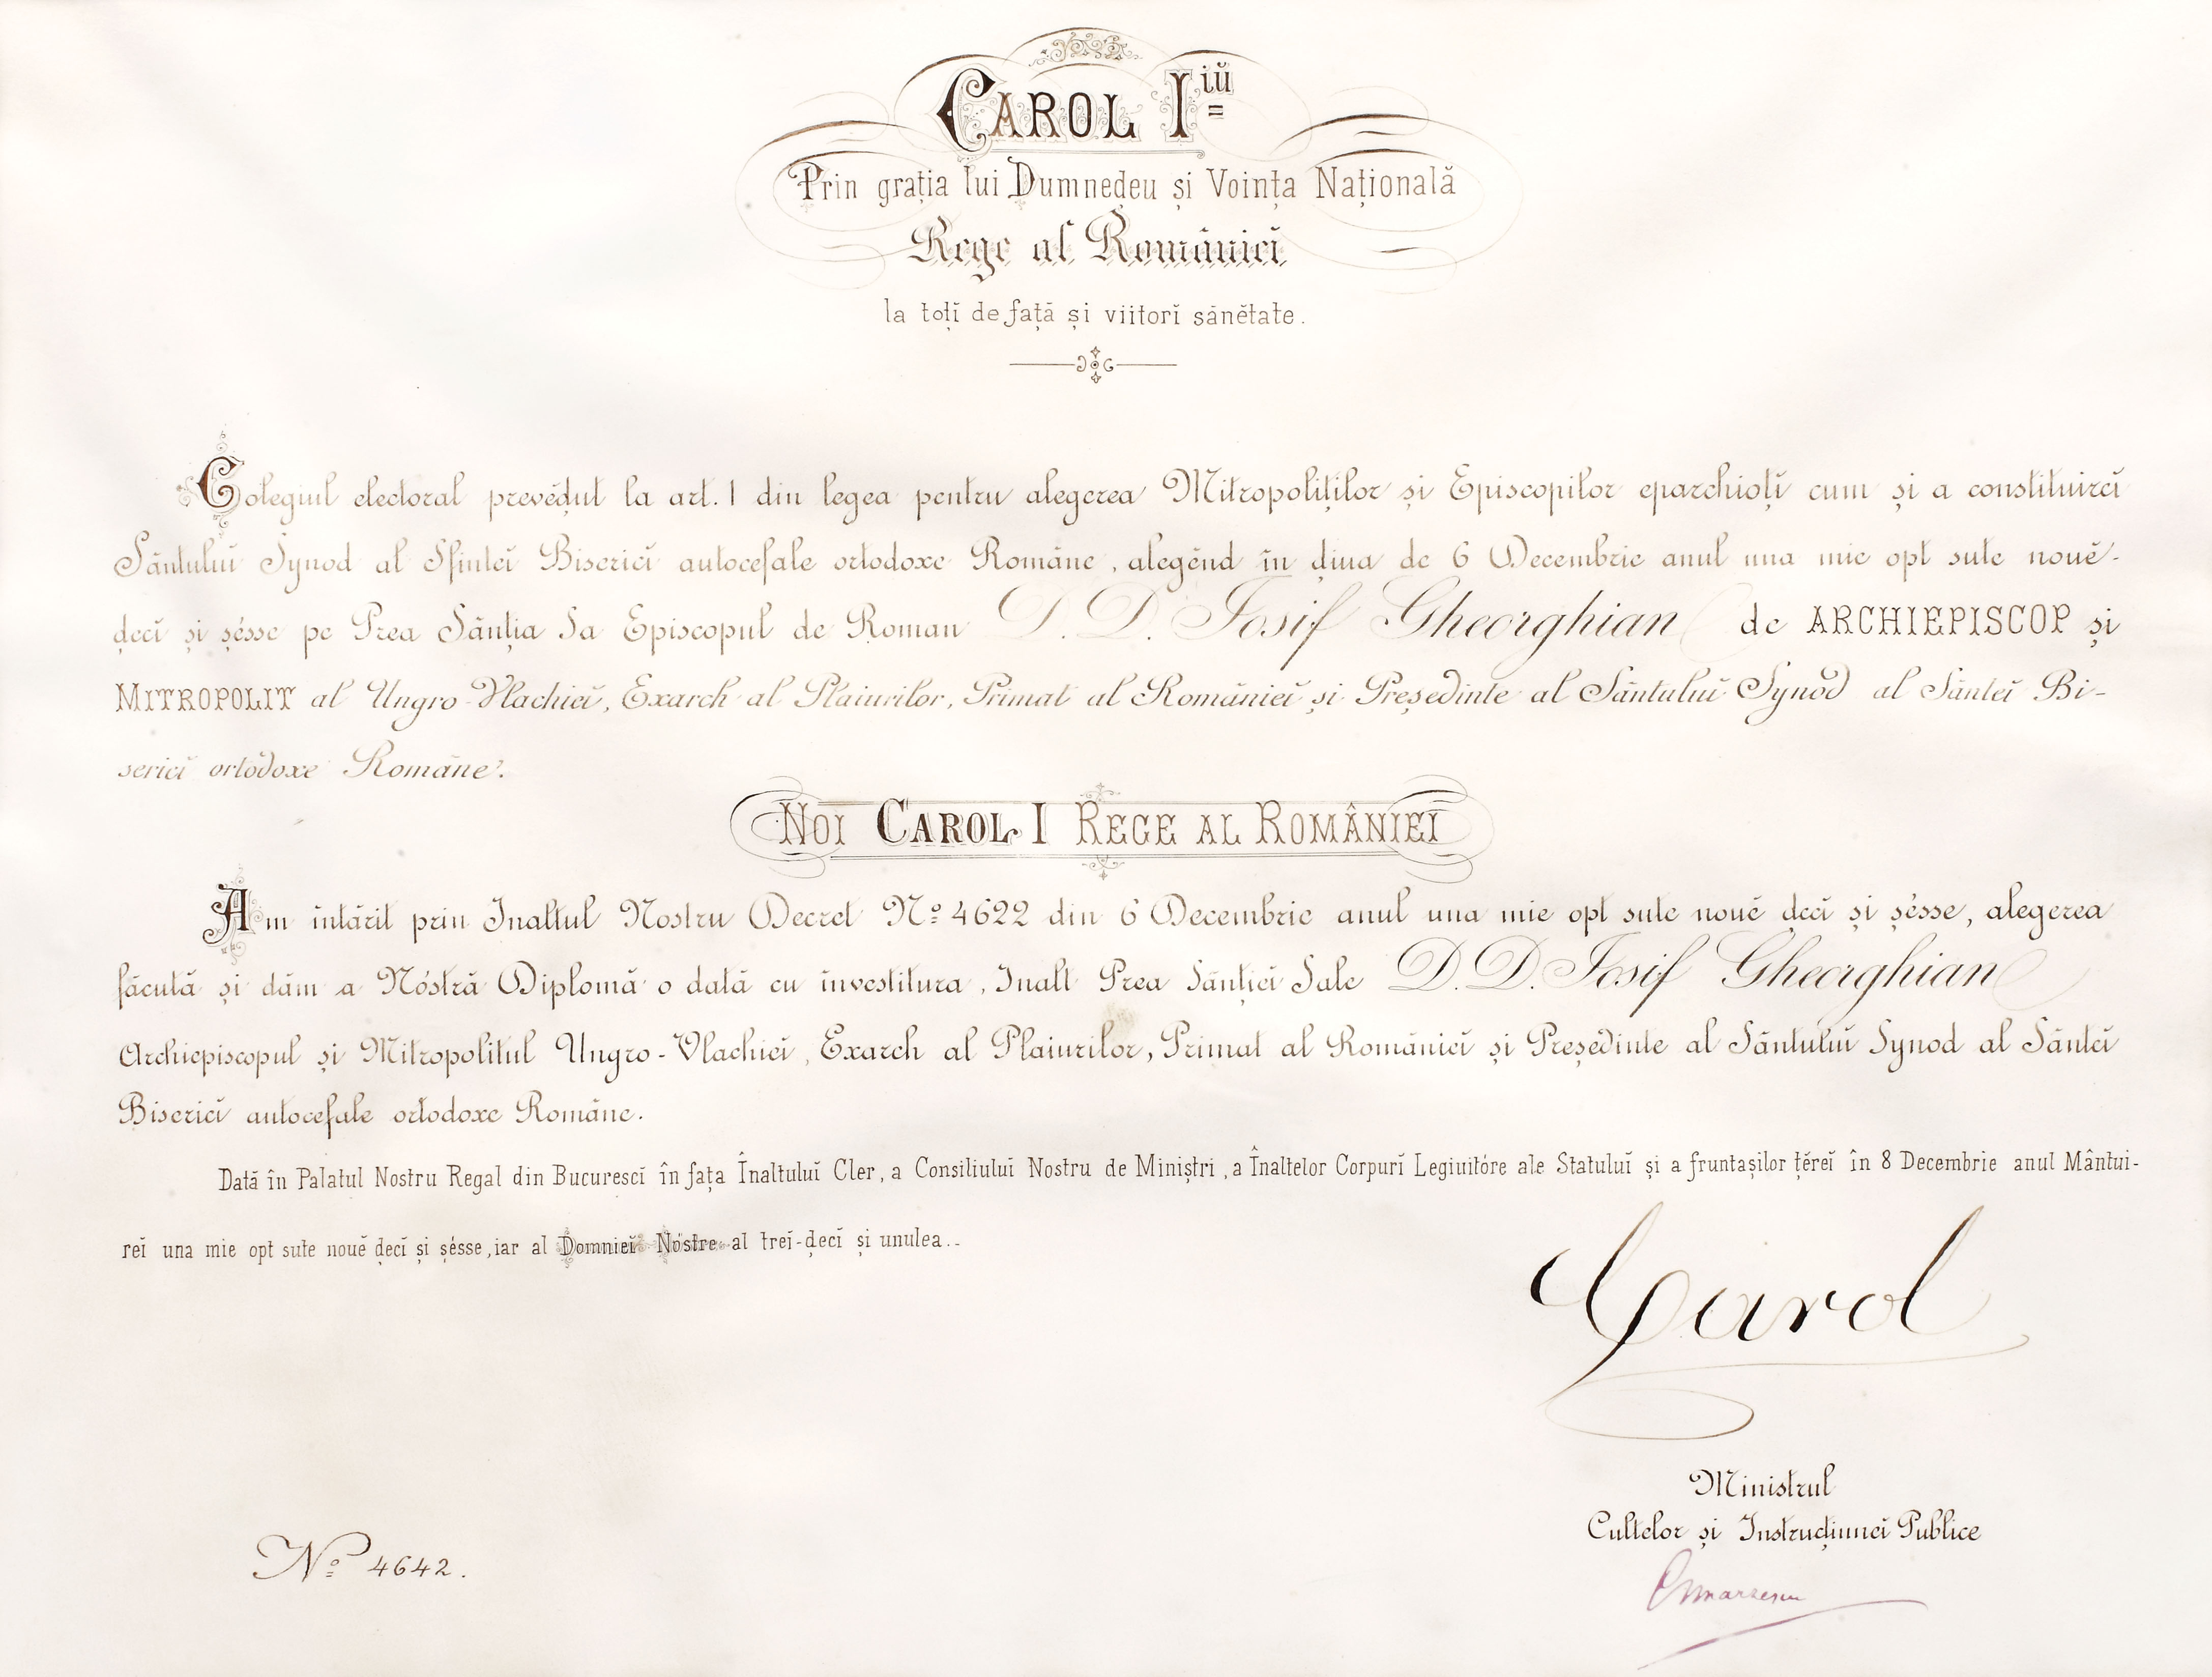 CAROL I iŭ
Prin grația lui Dumnedeu și Voința Națională
Rege al Românieĭ
la toțĭ de față și viitorĭ sănĕtate.
Colegiul electoral prevĕḑut la art. 1 din legea pentru alegerea Mitropoliților și Episcopilor eparchioțĭ cum și a constituireĭ
Sântuluĭ Synod al Sfinteĭ Bisericĭ autocefale ortodoxe Române, alegênd în ḑiua de 6 Decembrie anul una mie opt sute nouĕ-
ḑecĭ și șésse pe Prea Sânția Sa Episcopul de Roman D. D. Iosif Gheorghian de ARCHIEPISCOP și
MITROPOLIT al Ungro-Vlachieĭ, Exarch al Plaiurilor, Primat al Românieĭ și Președinte al Sântuluĭ Synod al Sânteĭ Bi-
sericĭ ortodoxe Române.
NOI CAROL I REGE AL ROMÂNIEĬ
Am întărit prin Inaltul Nostru Decret Nº 4622 din 6 Decembrie anul una mie opt sute nouĕ ḑecĭ și șésse, alegerea
făcută și dăm a Nóstră Diplomă o dată cu investitura, Inalt Prea Sânțieĭ Sale D. D. Iosif Gheorghian
Archiepiscopul și Mitropolitul Ungro-Vlachieĭ, Exarch al Plaiurilor, Primat al Românieĭ și Președinte al Sântuluĭ Synod al Sânteĭ
Bisericĭ autocefale ortodoxe Române.
Dată în Palatul Nostru Regal din Bucurescĭ în fața Înaltuluĭ Cler, a Consiliuluĭ Nostru de Miniștri, a Înaltelor Corpurĭ Legiuitóre ale Statuluĭ și a fruntașilor țĕreĭ în 8 Decembrie anul Mântui-
reĭ una mie opt sute nouĕ ḑecĭ și șésse, iar al Domnieĭ Nóstre al treĭ-ḑecĭ și unulea..
Carol
Ministrul
Cultelor și Instrucțiuneĭ Publice
Nº 4642.